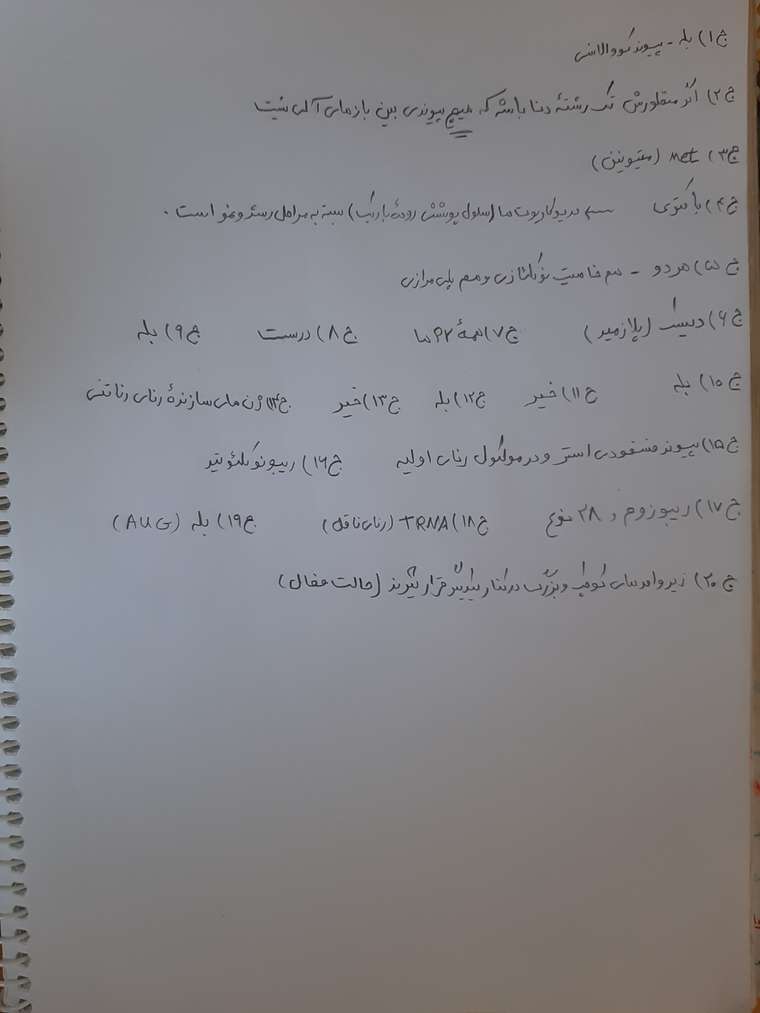 ج۱) بله - پیوند کووالانسی
ج۲) اگر منظورش تک رشتهٔ دنا باشه که هیچ پیوندی بین بازهای آلی نیست
ج۳) met (متیونین)
ج۴) باکتری ← در یوکاریوت ها (سلول پوششی رودهٔ باریک) بسته به مراحل رشد و نمو است.
ج۵) هر دو - هم خاصیت نوکلئازی و هم پلی مرازی
ج۶) دیسک (پلازمید) ج۷) همهٔ ۶۲ ها ج۸) درست ج۹) بله
ج۱۰) بله ج۱۱) خیر ج۱۲) بله ج۱۳) خیر ج۱۴) ژن های سازندهٔ رنای رناتنی
ج۱۵) پیوند فسفودی استر و در مولکول رنای اولیه ج۱۶) ریبونوکلئوتید
ج۱۷) ریبوزوم و ۲۸ نوع ج۱۸) tRNA (رنای ناقل) ج۱۹) بله (AUG)
ج۲۰) زیر واحدهای کوچک و بزرگ در کنار یکدیگر قرار گیرند (حالت فعال)